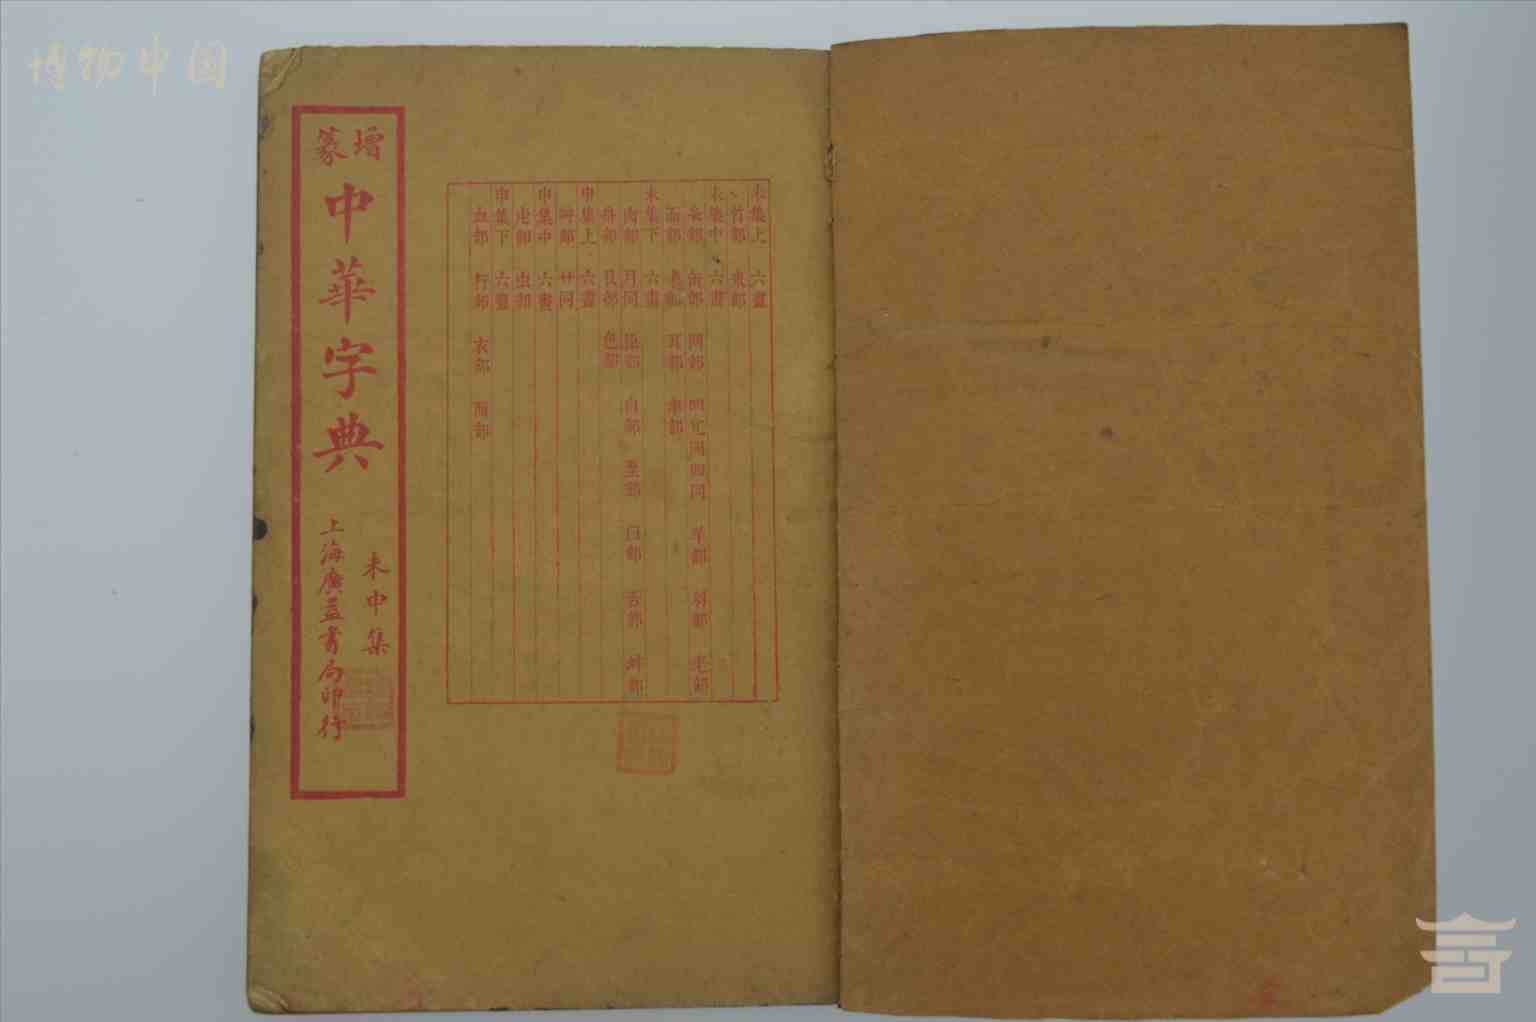 博物中国
增篆
中華字典
未申集
上海廣益書局印行
未集上 六畫
竹部 米部
未集中 六畫
糸部 缶部 网部 羊部 羽部 老部
而部 耒部 耳部 聿部
未集下 六畫
肉部 月同 臣部 自部 至部 臼部 舌部 舛部
舟部 艮部 色部
申集上 六畫
艸部 艹同
申集中 六畫
虍部 虫部
申集下 六畫
血部 行部 衣部 襾部